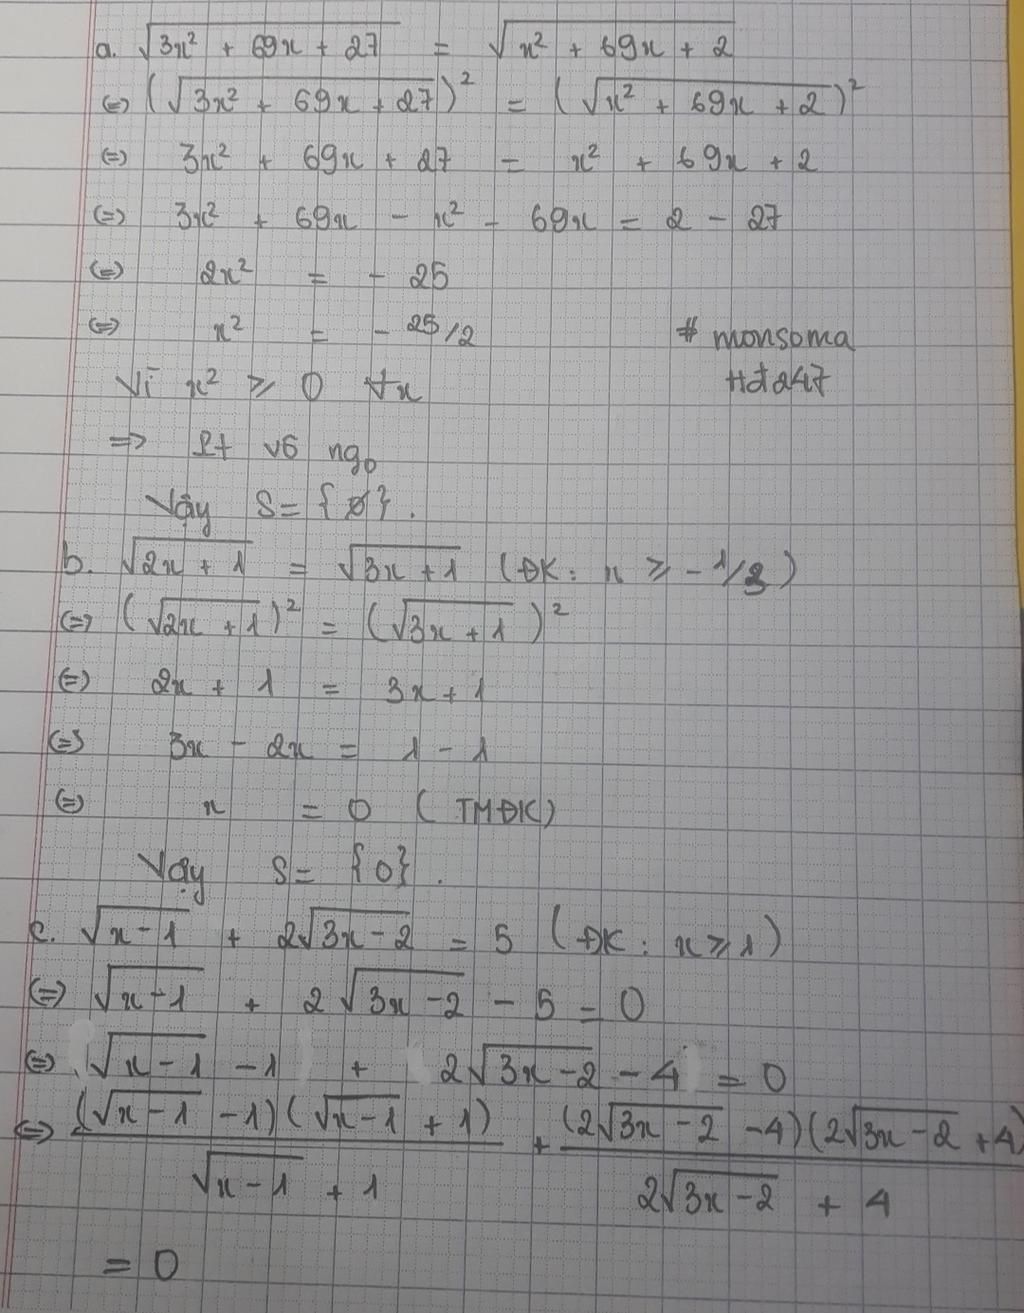 a. √(3x² + 69x + 27) = √(x² + 69x + 2)
⇔ (√(3x² + 69x + 27))² = (√(x² + 69x + 2))²
⇔ 3x² + 69x + 27 = x² + 69x + 2
⇔ 3x² + 69x - x² - 69x = 2 - 27
⇔ 2x² = - 25
⇔ x² = - 25/2
# monsoma
Hđ247
Vì x² ⩾ 0 ∀x
=> Pt vô ngo
Vậy S = {∅}.
b. √(2x + 1) = √(3x + 1) (ĐK: x ⩾ -1/3)
⇔ (√(2x + 1))² = (√(3x + 1))²
⇔ 2x + 1 = 3x + 1
⇔ 3x - 2x = 1 - 1
⇔ x = 0 (TMĐK)
Vậy S = {0}.
c. √(x - 1) + 2√(3x - 2) = 5 (ĐK: x ⩾ 1)
⇔ √(x - 1) + 2√(3x - 2) - 5 = 0
⇔ √(x - 1) - 1 + 2√(3x - 2) - 4 = 0
⇔ (√(x - 1) - 1)(√(x - 1) + 1) + (2√(3x - 2) - 4)(2√(3x - 2) + 4)
√(x - 1) + 1 2√(3x - 2) + 4
= 0